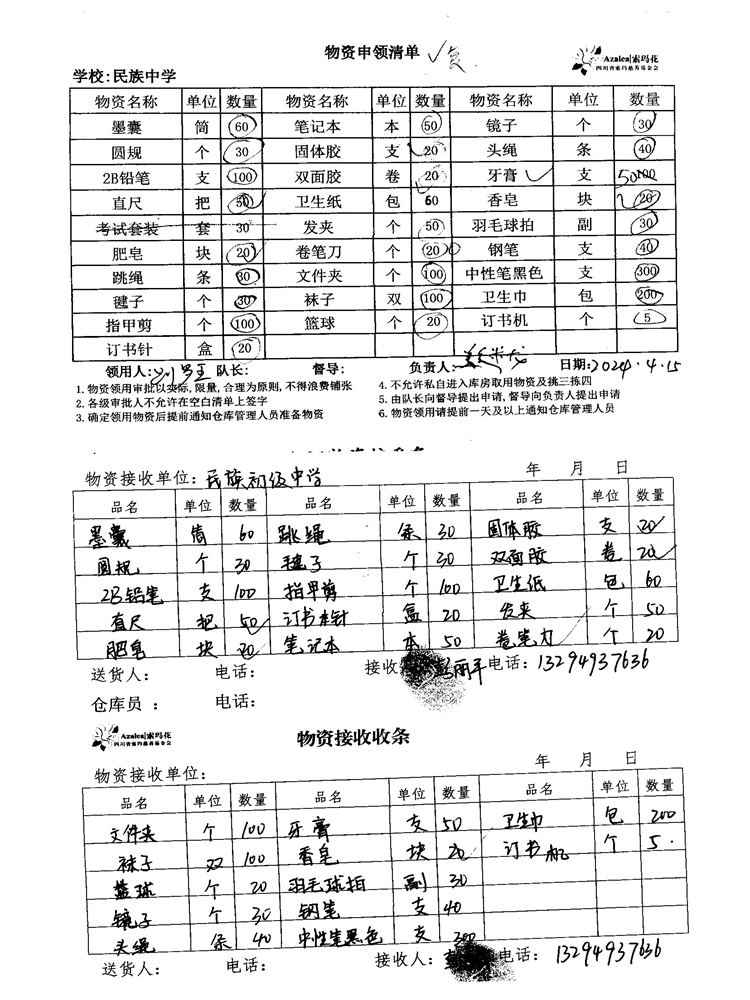 物资申领清单 √
Azalea|索玛花
四川省索玛慈善基金会
学校:民族中学
物资名称 单位 数量 物资名称 单位 数量 物资名称 单位 数量
墨囊 筒 60 笔记本 本 50 镜子 个 30
圆规 个 30 固体胶 支 20 头绳 条 40
2B铅笔 支 100 双面胶 卷 20 牙膏 支 50 100
直尺 把 50 卫生纸 包 60 香皂 块 20
考试套装 套 30 发夹 个 50 羽毛球拍 副 30
肥皂 块 20 卷笔刀 个 20 钢笔 支 40
跳绳 条 30 文件夹 个 100 中性笔黑色 支 300
毽子 个 30 袜子 双 100 卫生巾 包 200
指甲剪 个 100 篮球 个 20 订书机 个 5
订书针 盒 20
领用人: 队长: 督导: 负责人: 日期:2024.4.15
1.物资领用审批以实际,限量,合理为原则,不得浪费铺张 4.不允许私自进入库房取用物资及挑三拣四
2.各级审批人不允许在空白清单上签字 5.由队长向督导提出申请,督导向负责人提出申请
3.确定领用物资后提前通知仓库管理人员准备物资 6.物资领用请提前一天及以上通知仓库管理人员
物资接收单位:民族初级中学 年 月 日
品名 单位 数量 品名 单位 数量 品名 单位 数量
墨囊 筒 60 跳绳 条 30 固体胶 支 20
圆规 个 30 毽子 个 30 双面胶 卷 20
2B铅笔 支 100 指甲剪 个 100 卫生纸 包 60
直尺 把 50 订书本针 盒 20 发夹 个 50
肥皂 块 20 笔记本 本 50 卷笔刀 个 20
送货人: 电话: 接收 电话:13294937636
仓库员 : 电话:
Azalea|索玛花
四川省索玛慈善基金会
物资接收收条
物资接收单位: 年 月 日
品名 单位 数量 品名 单位 数量 品名 单位 数量
文件夹 个 100 牙膏 支 50 卫生巾 包 200
袜子 双 100 香皂 块 20 订书机 个 5.
篮球 个 20 羽毛球拍 副 30
镜子 个 30 钢笔 支 40
头绳 条 40 中性笔黑色 支 300
送货人: 电话: 接收人: 电话: 13294937636